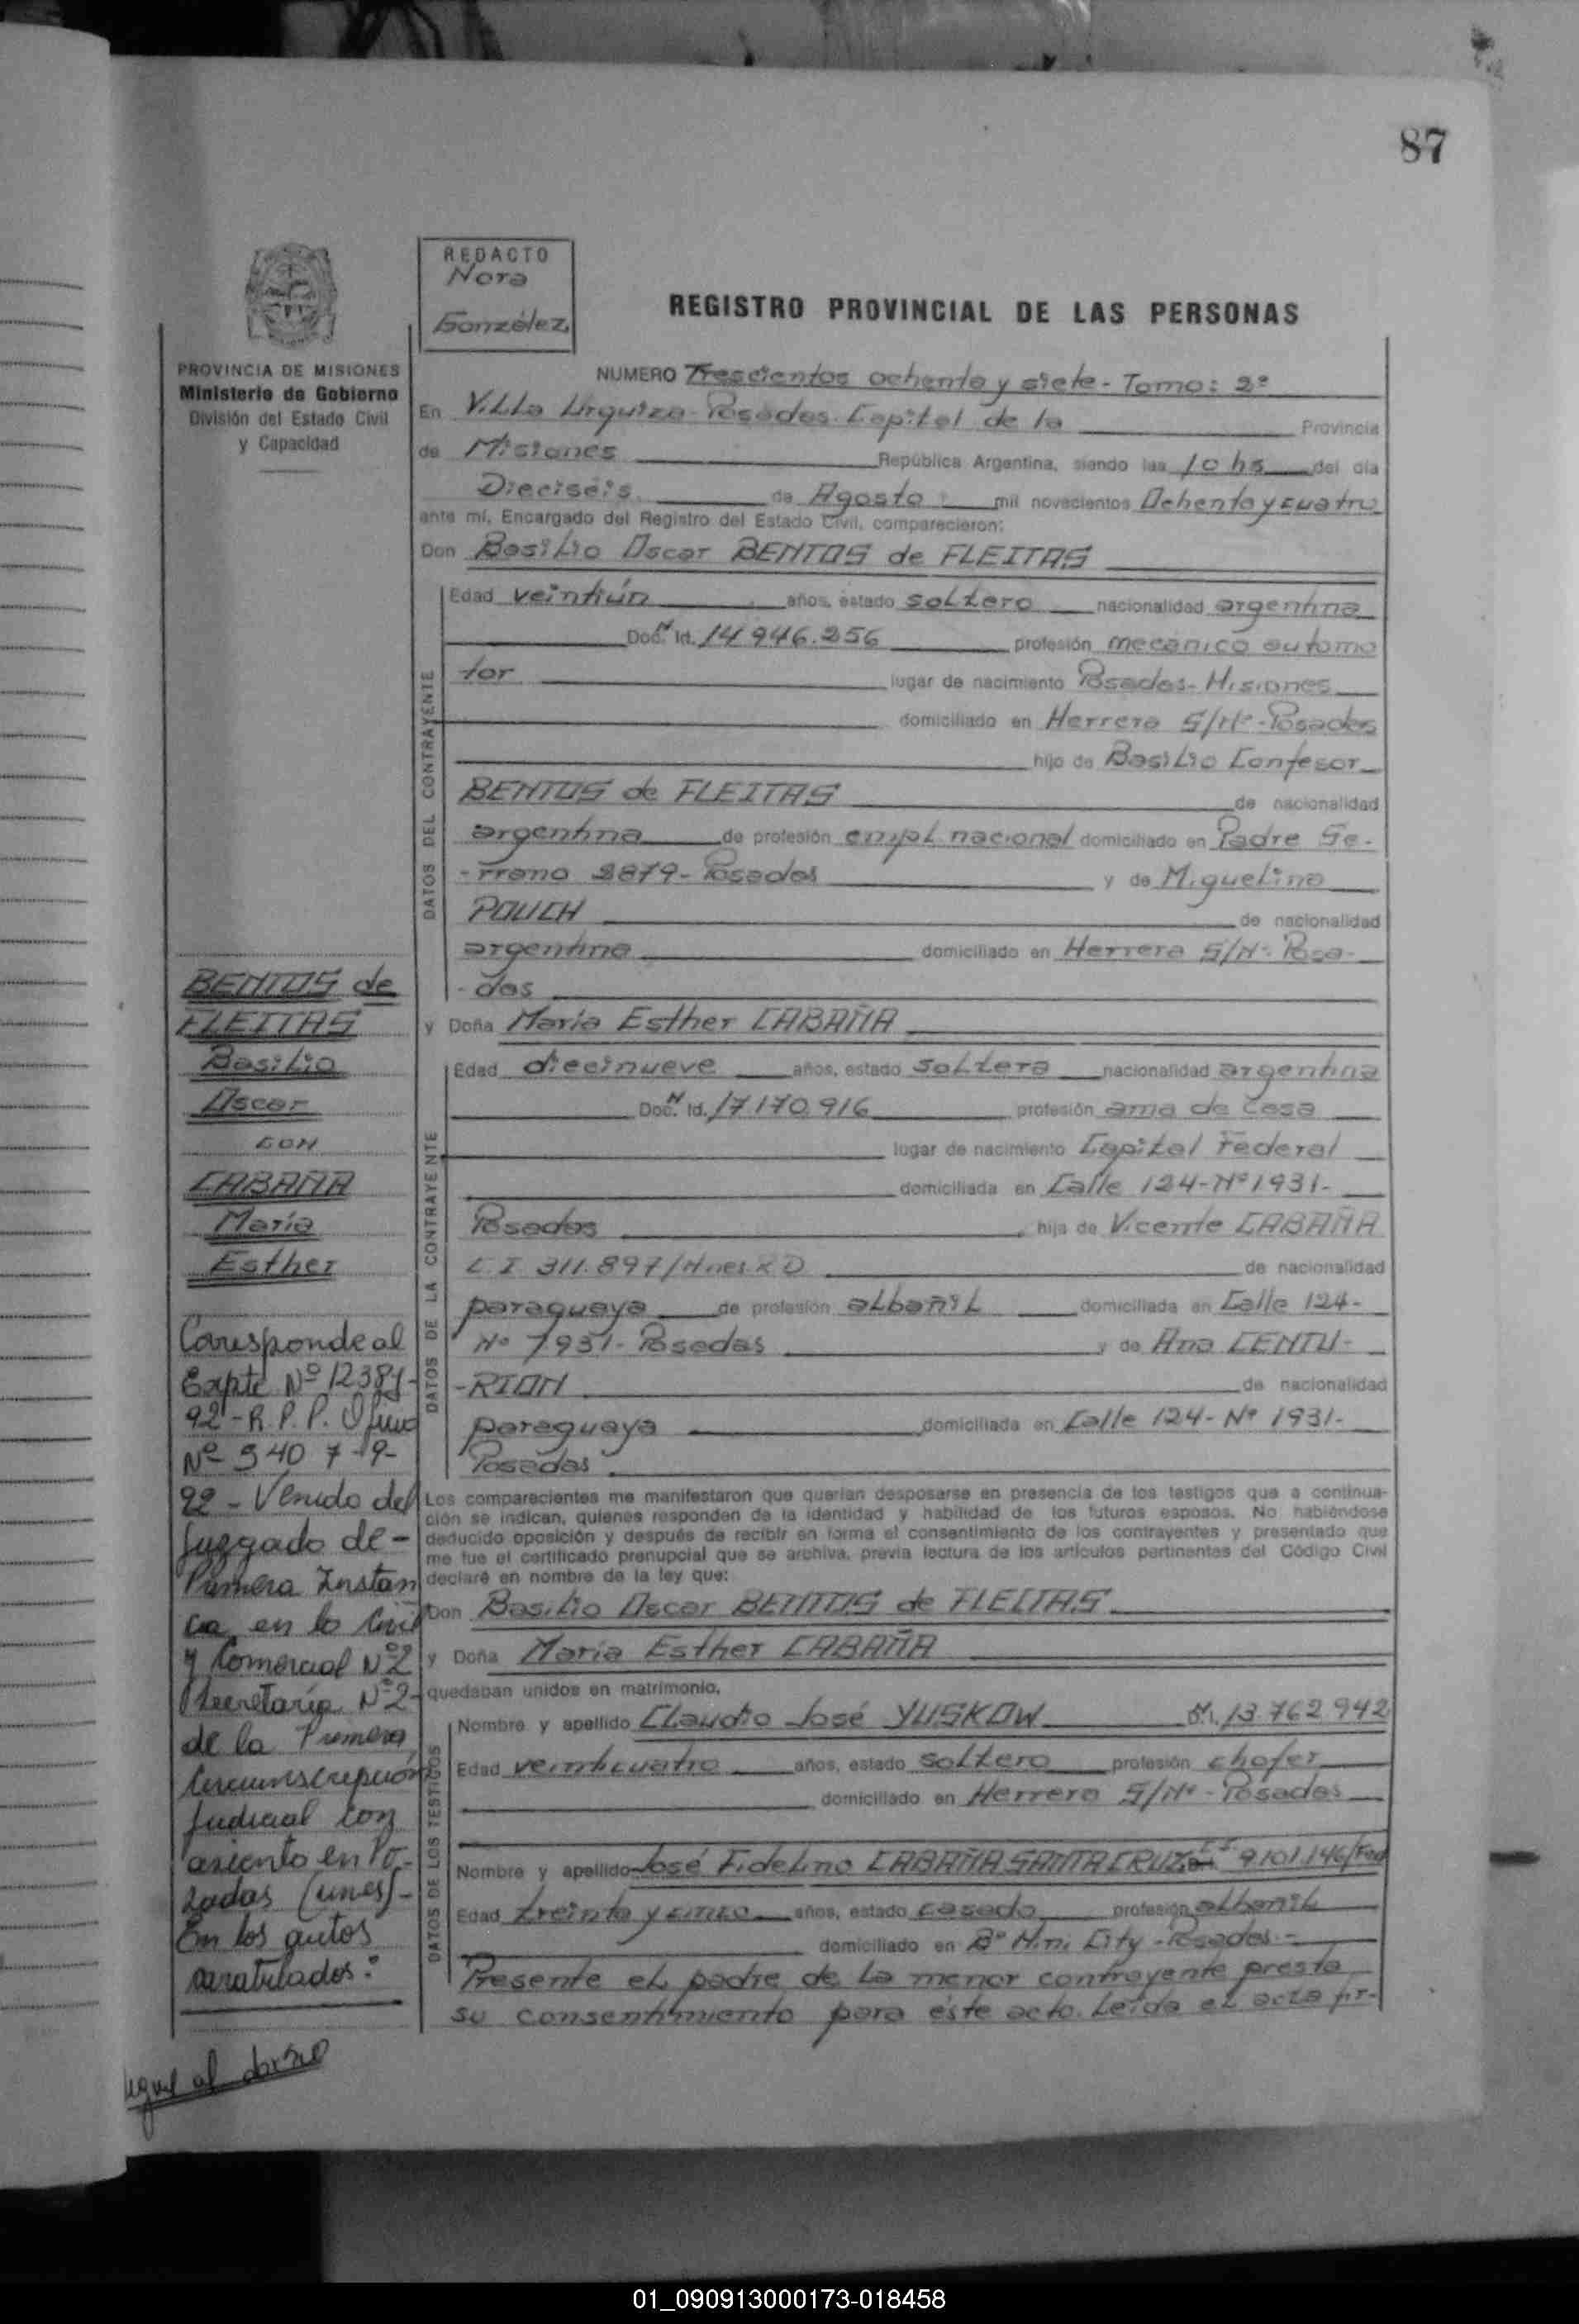 87
REDACTO
Nora
González
REGISTRO PROVINCIAL DE LAS PERSONAS
PROVINCIA DE MISIONES
Ministerio de Gobierno
División del Estado Civil
y Capacidad
NUMERO Trescientos ochenta y siete - Tomo: 2º
En Villa Urquiza - Posadas. Capital de la Provincia
de Misiones República Argentina, siendo las 10 hs del día
Dieciséis de Agosto mil novecientos Ochenta y cuatro
ante mí, Encargado del Registro del Estado Civil, comparecieron:
Don Basilio Oscar BENTOS de FLEITAS
DATOS DEL CONTRAYENTE
Edad veintiún años, estado soltero nacionalidad argentina
Doc. Id. 14.946.256 profesión mecánico automo
tor lugar de nacimiento Posadas - Misiones
domiciliado en Herrera S/Nº - Posadas
hijo de Basilio Confesor
BENTOS de FLEITAS de nacionalidad
argentina de profesión empl. nacional domiciliado en Padre Se-
-rrano 2879 - Posadas y de Miguelina
POUCH de nacionalidad
argentina domiciliado en Herrera S/Nº - Posa-
-das
y Doña María Esther CABAÑA
DATOS DE LA CONTRAYENTE
Edad diecinueve años, estado soltera nacionalidad argentina
Doc. Id. 17.170.916 profesión ama de casa
lugar de nacimiento Capital Federal
domiciliada en Calle 124 - Nº 1931 -
Posadas hija de Vicente CABAÑA
C.I. 311.897 de nacionalidad
paraguaya de profesión albañil domiciliada en Calle 124 -
Nº 1931 - Posadas y de Ana CENTU-
-RION de nacionalidad
paraguaya domiciliada en Calle 124 - Nº 1931 -
Posadas
Los comparecientes me manifestaron que querían desposarse en presencia de los testigos que a continua-
ción se indican, quienes responden de la identidad y habilidad de los futuros esposos. No habiéndose
deducido oposición y después de recibir en forma el consentimiento de los contrayentes y presentado que
me fue el certificado prenupcial que se archiva, previa lectura de los artículos pertinentes del Código Civil
declaré en nombre de la ley que:
Don Basilio Oscar BENTOS de FLEITAS
y Doña María Esther CABAÑA
quedaban unidos en matrimonio.
DATOS DE LOS TESTIGOS
Nombre y apellido Claudio José YUSKOW 13.762.942
Edad veinticuatro años, estado soltero profesión chofer
domiciliado en Herrera S/Nº - Posadas
Nombre y apellido José Fidelino CABAÑA SANTA CRUZ 9.101.146/Fed
Edad treinta y cinco años, estado casado profesión albañil
domiciliado en Bº Mini City - Posadas -
Presente el padre de la menor contrayente presta
su consentimiento para éste acto. Leída el acta fir-
BENTOS de
FLEITAS
Basilio
Oscar
CON
CABAÑA
María
Esther
Corresponde al
Expte Nº 12381-
92 - R.P.P. Oficio
Nº 340 7-9-
92 - Venido del
Juzgado de -
Primera Instan
cia en lo Civil
y Comercial Nº 2
Secretaría Nº 2-
de la Primera
Circunscripción
Judicial con
asiento en Po-
sadas (Mnes) -
En los autos
caratulados:
sigue al dorso
01_090913000173-018458